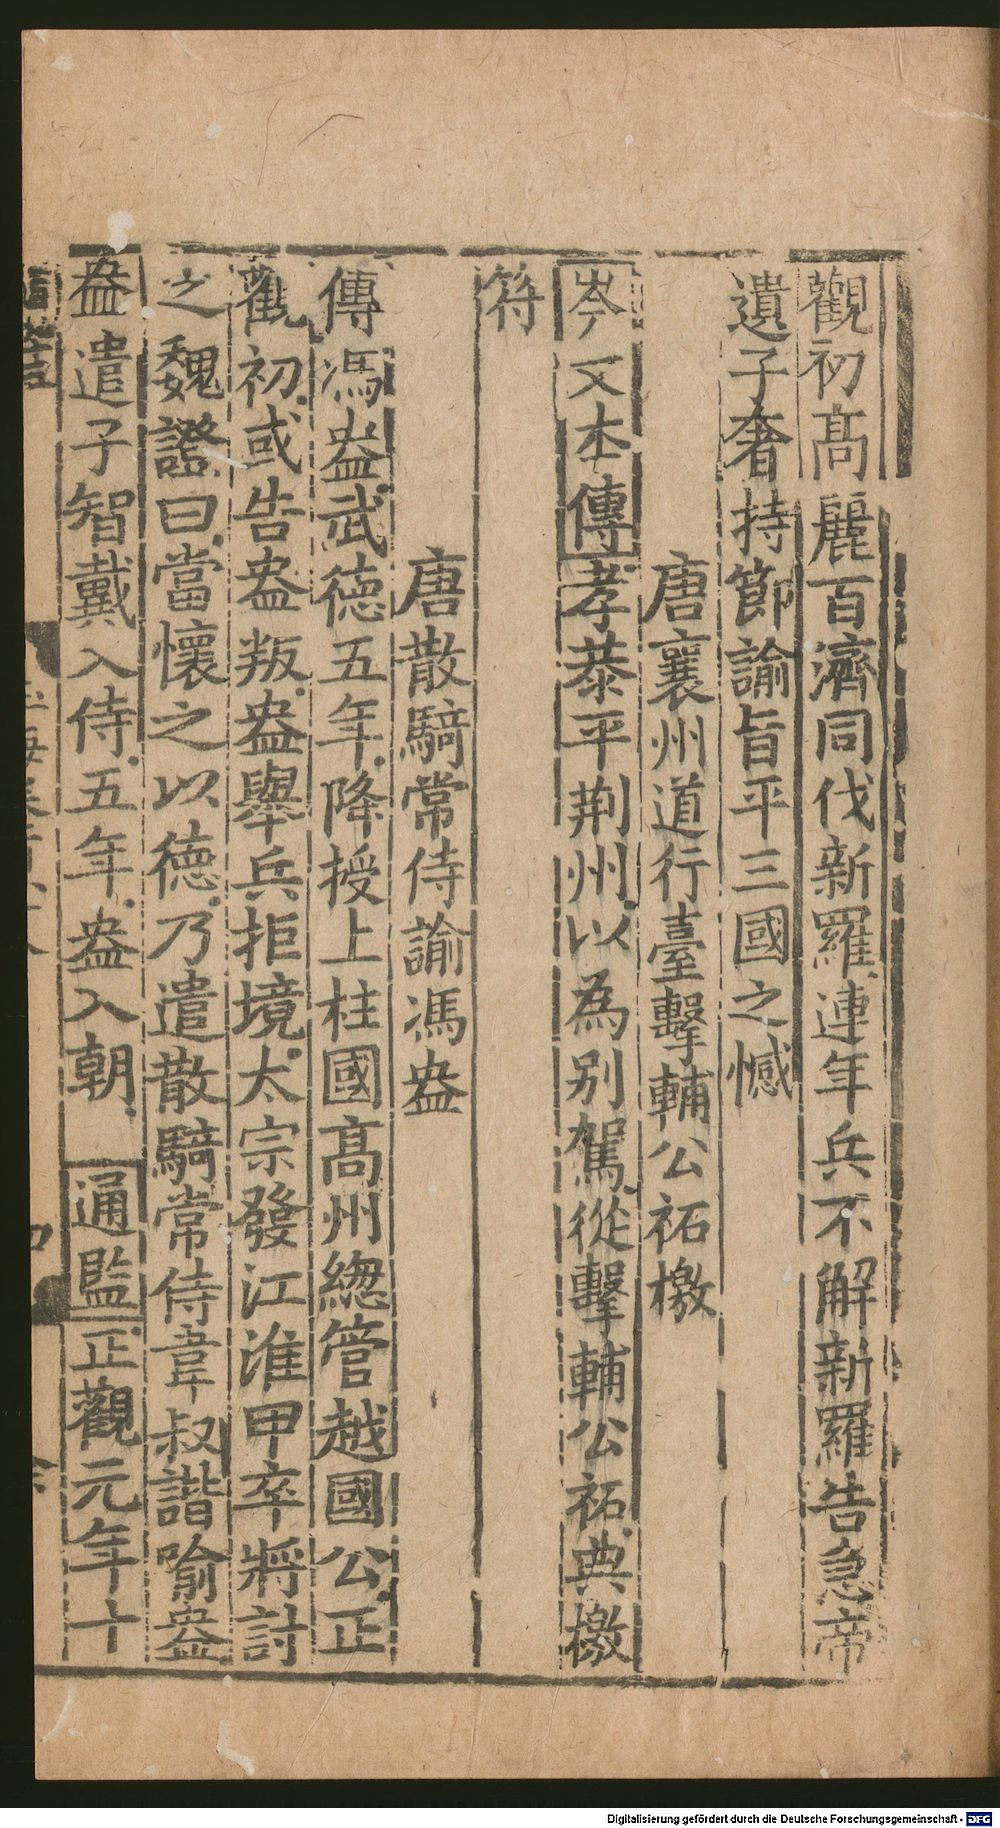 觀初高麗百濟同伐新羅連年兵不解新羅告急帝
遺子奢持節諭旨平三國之憾
唐襄州道行臺擊輔公祏檄
岑文本傳孝恭平荆州以為别駕從擊輔公祏典檄
符
唐散騎常侍諭馮盎
傳馮盎武德五年降授上柱國高州緫管越國公正
觀初或告盎叛盎舉兵拒境太宗發江淮甲卒將討
之魏證曰當懷之以德乃遣散騎常侍韋叔諧喻盎
盎遣子智戴入侍五年盎入朝 通監正觀元年十
Digitalisierung gefördert durch die Deutsche Forschungsgemeinschaft - DFG